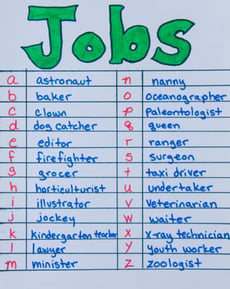 Jobs
a astronaut
b baker
c clown
d dog catcher
e editor
f firefighter
g grocer
h horticulturist
i illustrator
j jockey
k kindergarten teacher
l lawyer
m minister
n nanny
o oceanographer
p paleontologist
q queen
r ranger
s surgeon
t taxi driver
u undertaker
v veterinarian
w waiter
x x-ray technician
y youth worker
z zoologist